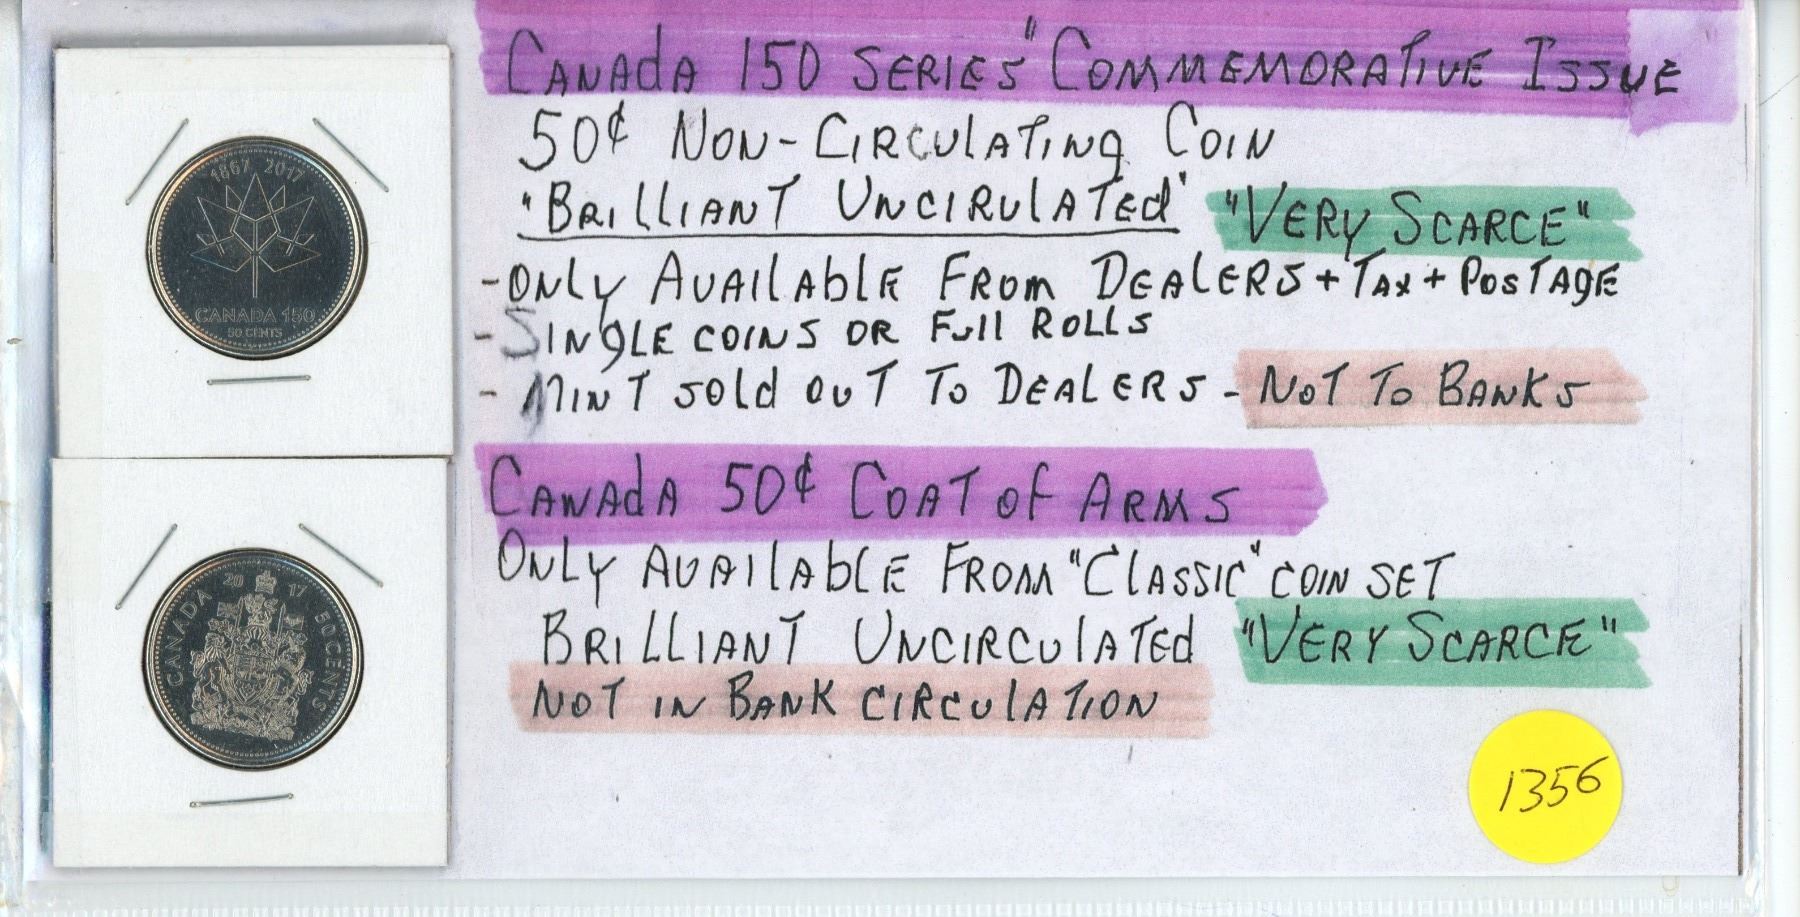 1867 2017
CANADA 150
50 CENTS
CANADA 20 17 50 CENTS
CANADA 150 SERIES "COMMEMORATIVE ISSUE
50¢ NON-CIRCULATING COIN
"BRILLIANT UNCIRULATED" "VERY SCARCE"
- ONLY AVAILABLE FROM DEALERS + TAX + POSTAGE
- SINGLE COINS OR FULL ROLLS
- MINT SOLD OUT TO DEALERS - NOT TO BANKS
CANADA 50¢ COAT OF ARMS
ONLY AVAILABLE FROM "CLASSIC" COIN SET
BRILLIANT UNCIRCULATED "VERY SCARCE"
NOT IN BANK CIRCULATION
1356